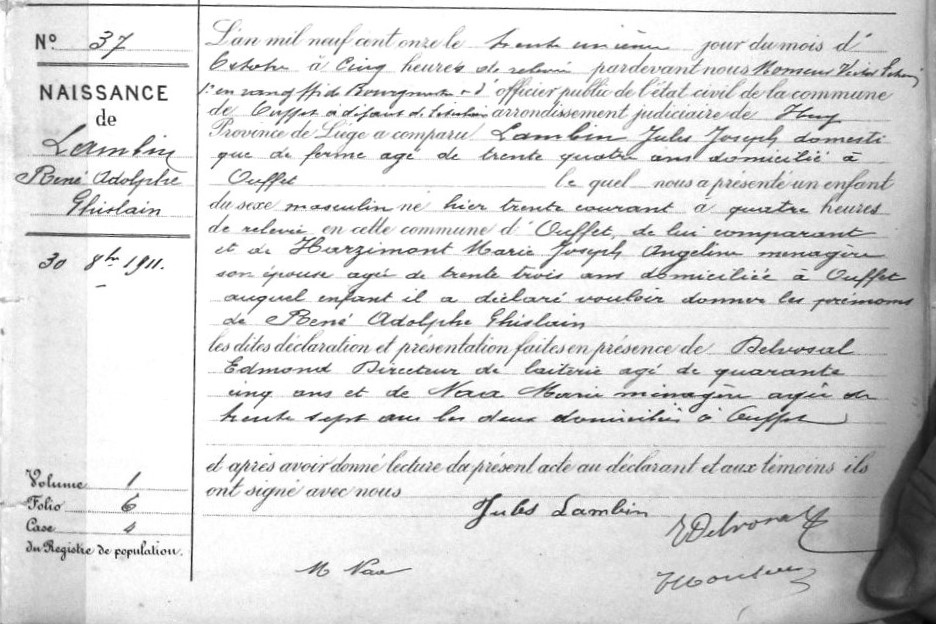 N° 37
NAISSANCE
de
Lambin
René Adolphe
Ghislain
30 8bre 1911.
Volume 1
Folio 6
Case 4
du Registre de population.
L'an mil neuf cent onze le trente unième jour du mois d'
Octobre à Cinq heures de relevée pardevant nous Monseur Victor
officier public de l'état civil de la commune
de Ouffet à défaut de arrondissement judiciaire de Huy
Province de Liége a comparu Lambin Jules Joseph domesti
que de ferme agé de trente quatre ans domicilié à
Ouffet le quel nous a présenté un enfant
du sexe masculin né hier trente courant à quatre heures
de relevée en cette commune d' Ouffet, de lui comparant
et de Harzimont Marie Joseph Angeline menagère
son épouse agé de trente trois ans domiciliée à Ouffet
auquel enfant il a déclaré vouloir donner les prénoms
de René Adolphe Ghislain
les dites déclaration et présentation faites en présence de Delvosal
Edmond Directeur de laiterie agé de quarante
cinq ans et de Nax Marie menagère agée de
trente sept ans les deux domiciliés à Ouffet
et après avoir donné lecture du présent acte au déclarant et aux témoins ils
ont signé avec nous
Jules Lambin
M Nax